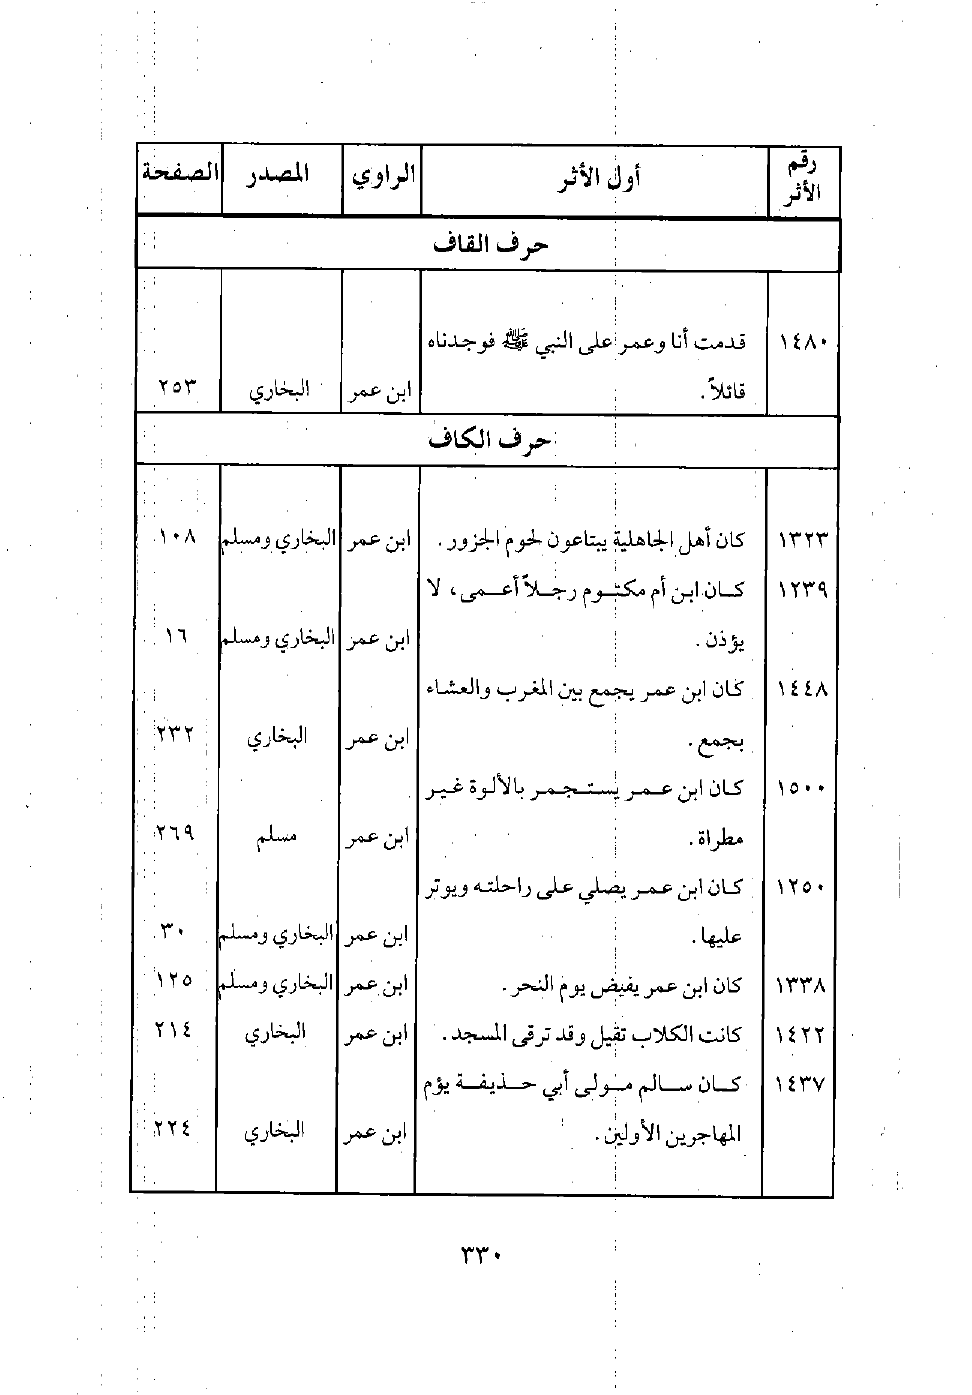 رقم الأثر | أول الأثر | الراوي | المصدر | الصفحة
حرف القاف
١٤٨٠ | قدمت أنا وعمر على النبي ﷺ فوجدناه
قائلاً . | ابن عمر | البخاري | ٢٥٣
حرف الكاف
١٣٢٣ | كان أهل الجاهلية يبتاعون لحوم الجزور . | ابن عمر | البخاري ومسلم | ١٠٨
١٢٣٩ | كان ابن أم مكتوم رجلاً أعمى، لا
يؤذن . | ابن عمر | البخاري ومسلم | ١٦
١٤٤٨ | كان ابن عمر يجمع بين المغرب والعشاء
بجمع . | ابن عمر | البخاري | ٢٣٢
١٥٠٠ | كان ابن عمر يستجمر بالألوة غير
مطراة . | ابن عمر | مسلم | ٢٦٩
١٢٥٠ | كان ابن عمر يصلي على راحلته ويوتر
عليها . | ابن عمر | البخاري ومسلم | ٣٠
١٣٣٨ | كان ابن عمر يفيض يوم النحر . | ابن عمر | البخاري ومسلم | ١٢٥
١٤٢٢ | كانت الكلاب تقيل وقد ترقى المسجد . | ابن عمر | البخاري | ٢١٤
١٤٣٧ | كان سالم مولى أبي حذيفة يؤم
المهاجرين الأولين . | ابن عمر | البخاري | ٢٢٤
٣٣٠